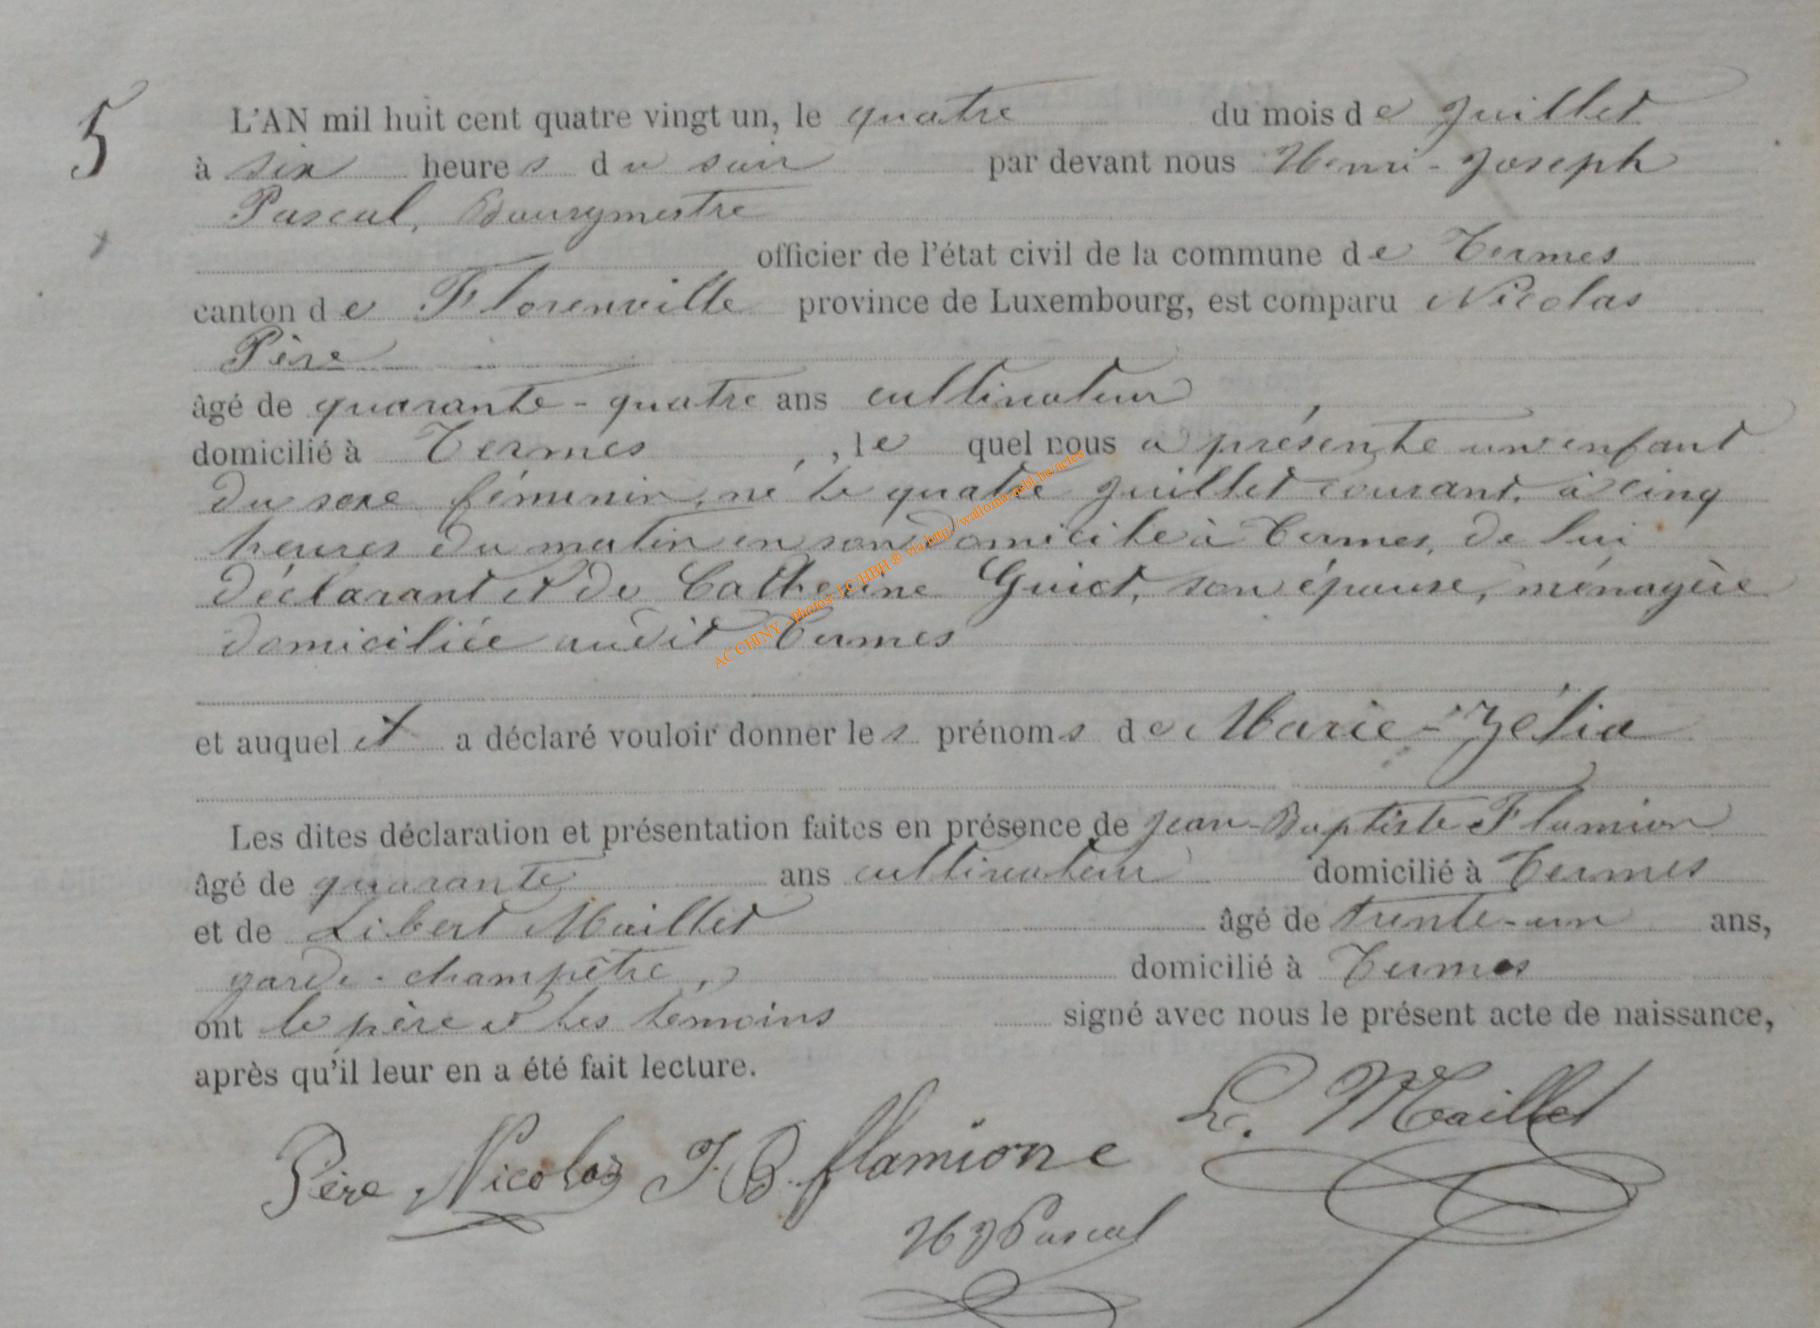 5
L'AN mil huit cent quatre vingt un, le quatre du mois de Juillet
à six heures du soir par devant nous Henri-Joseph
Pascal, Bourgmestre
officier de l'état civil de la commune de Termes
canton de Florenville province de Luxembourg, est comparu Nicolas
Père
âgé de quarante-quatre ans cultivateur
domicilié à Termes, , le quel nous a présenté un enfant
du sexe féminin, né le quatre Juillet courant, à cinq
heures du matin en son domicile à Termes, de lui
déclarant et de Catherine Guiot, son épouse, ménagère
domiciliée audit Termes
AC CHINY - Photos LC/HBH ® via http://wallonia-asbl.be/actes
et auquel il a déclaré vouloir donner les prénoms de Marie-Zélia
Les dites déclaration et présentation faites en présence de Jean-Baptiste Flamion
âgé de quarante ans cultivateur domicilié à Termes
et de Libert Maillet âgé de trente-un ans,
garde-champêtre, domicilié à Termes
ont le père et les témoins signé avec nous le présent acte de naissance,
après qu'il leur en a été fait lecture.
L. Maillet
Père Nicolas J B flamion e
H J Pascal